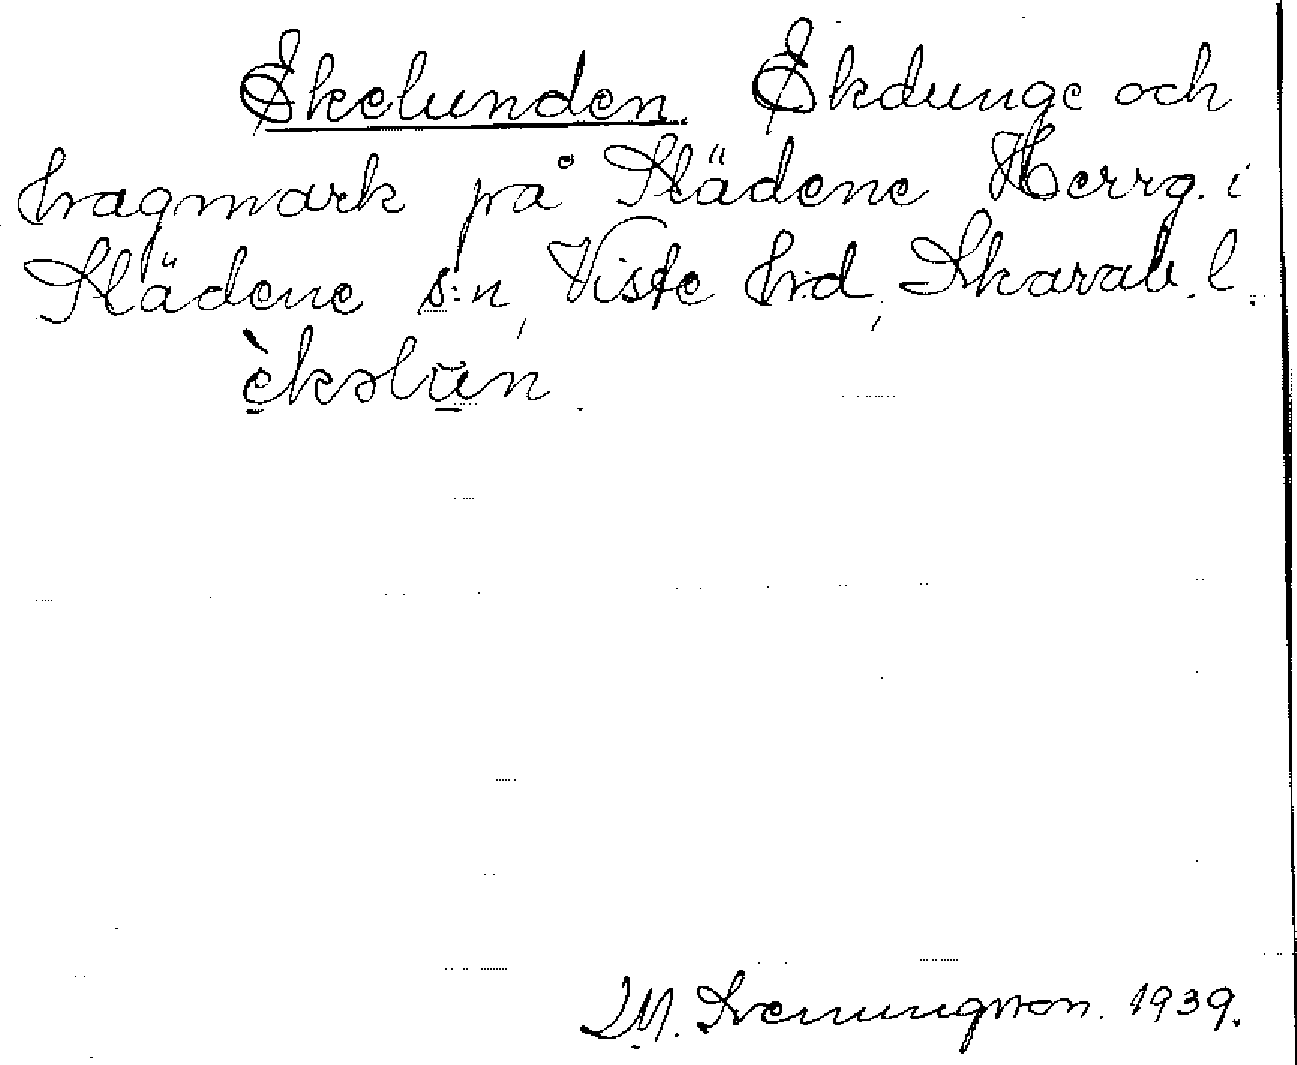 Ekelunden. Ekdunge och
hagmark på Slädene Herrg. i
Slädene s:n, Viste hd, Skarab. l.
èkəlu̅n.
M. Svenungsson. 1939.